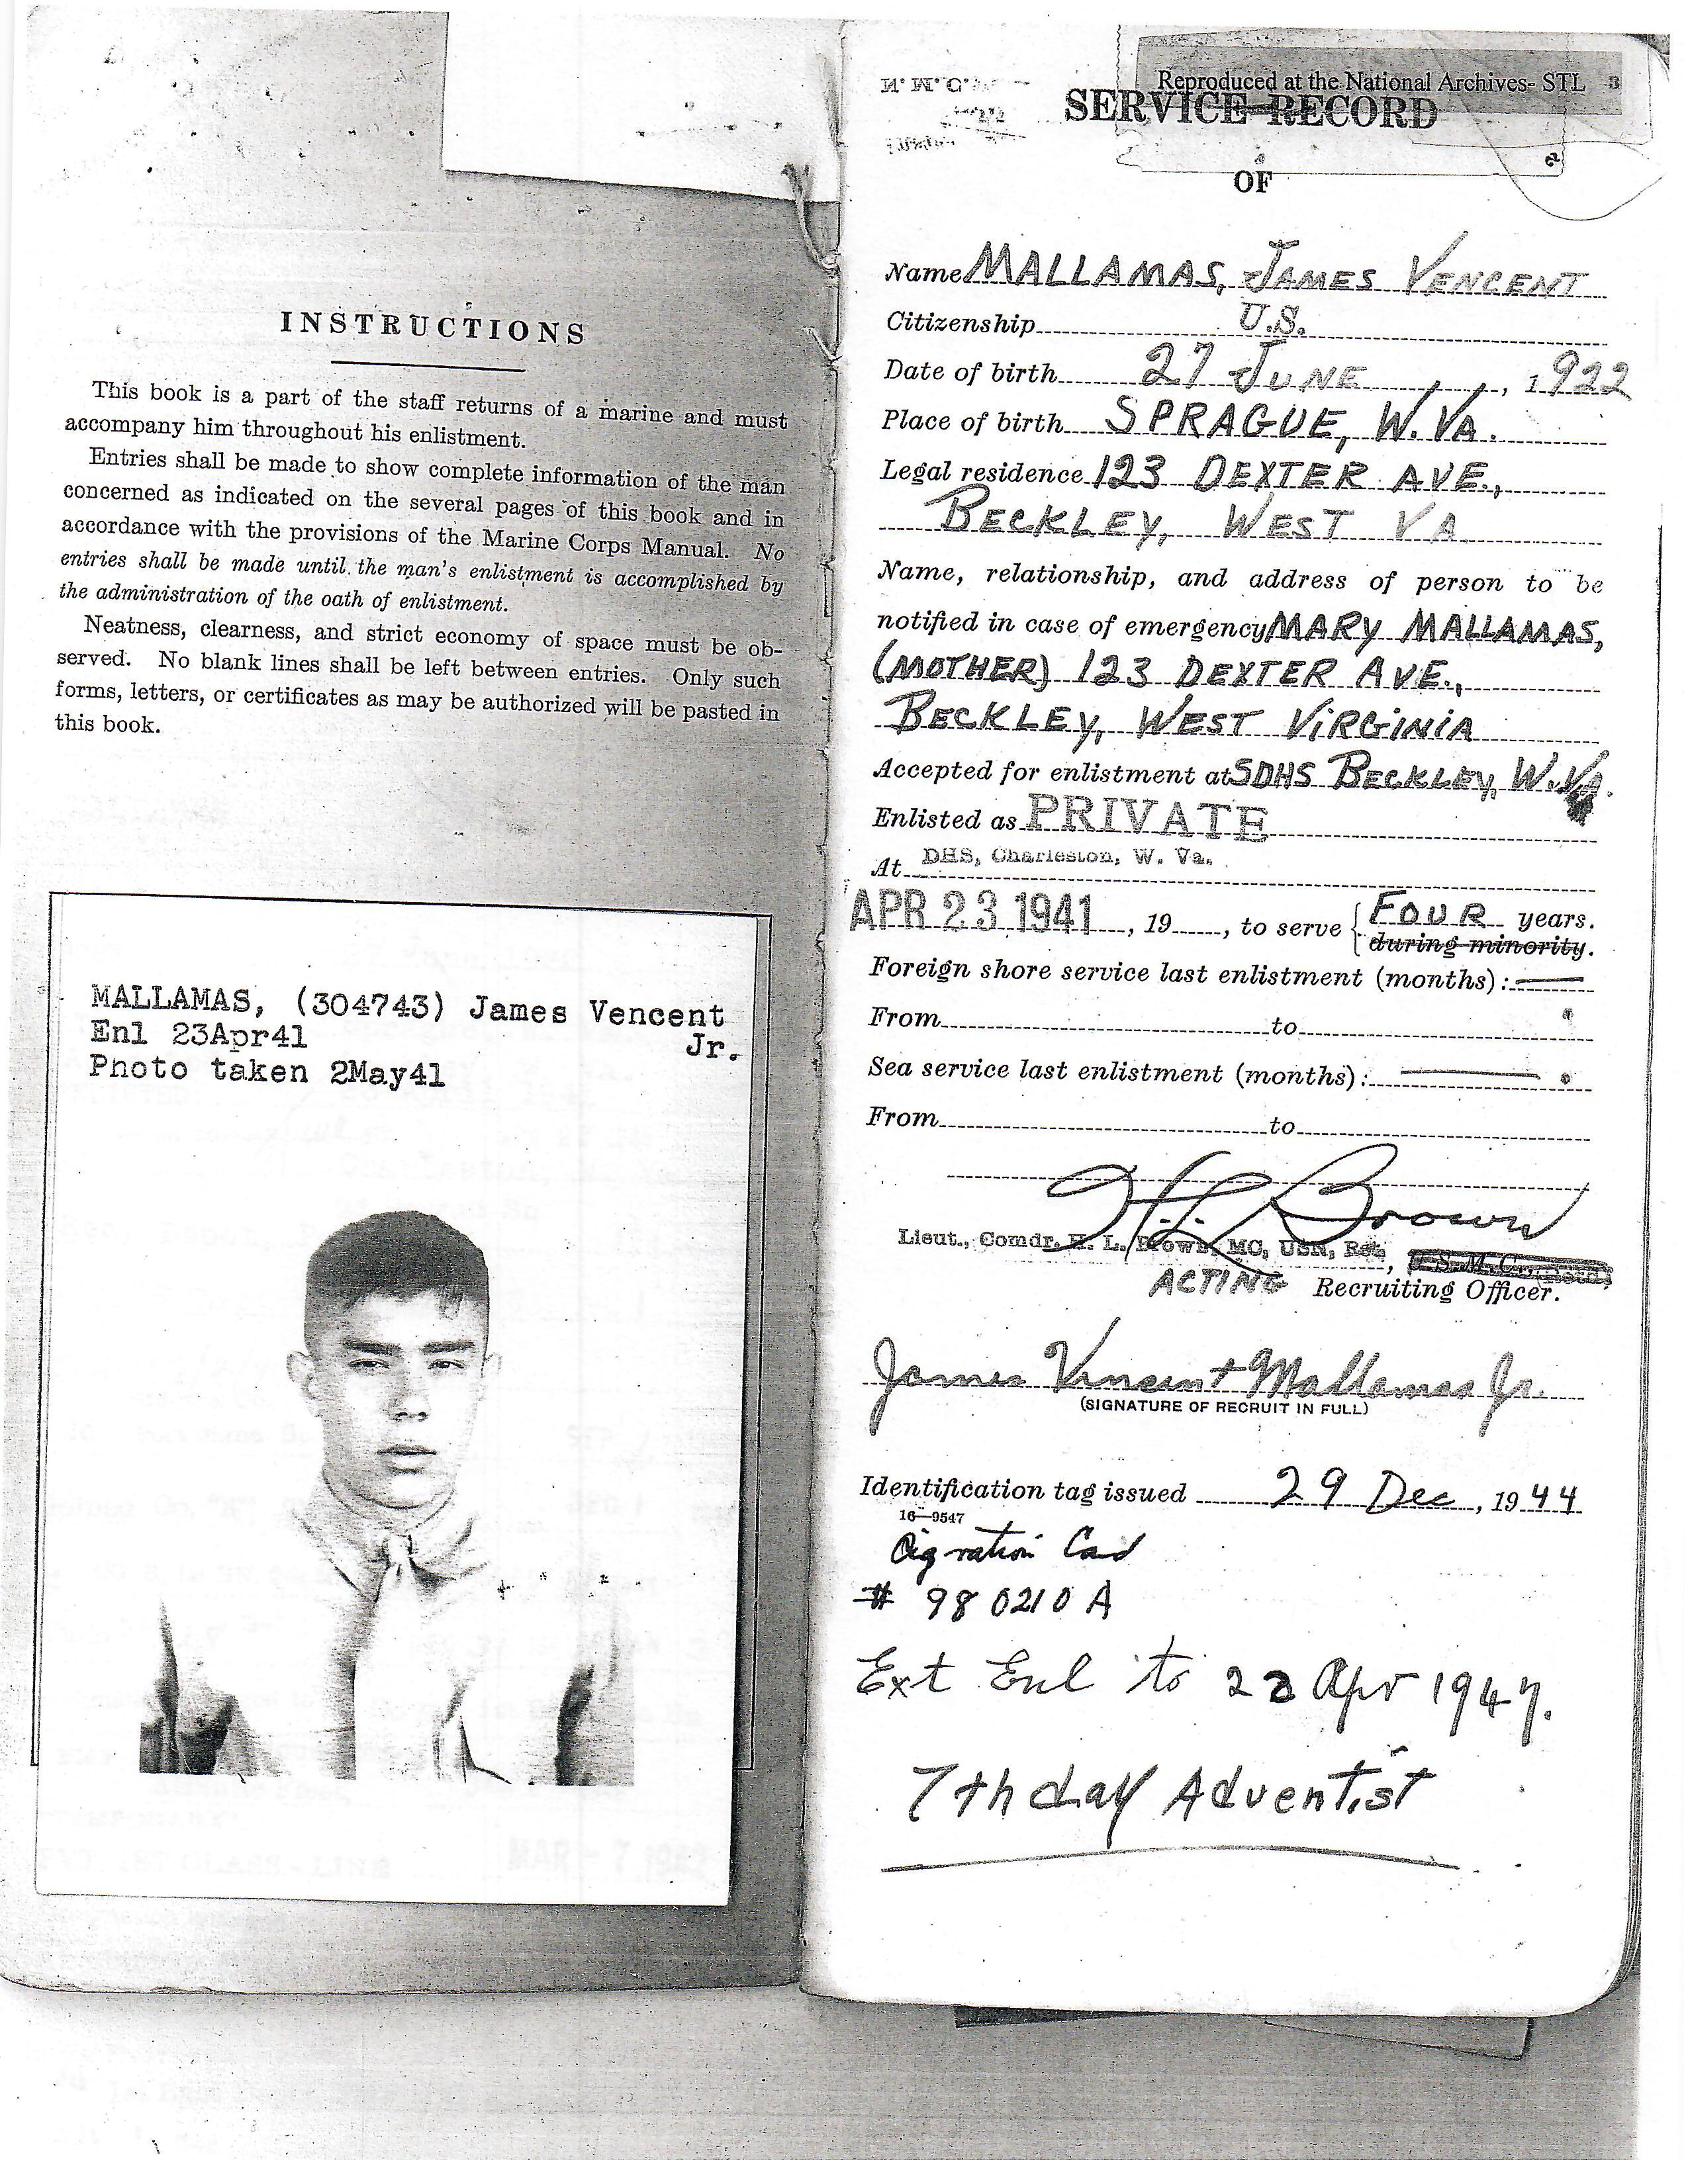 INSTRUCTIONS
This book is a part of the staff returns of a marine and must
accompany him throughout his enlistment.
Entries shall be made to show complete information of the man
concerned as indicated on the several pages of this book and in
accordance with the provisions of the Marine Corps Manual. No
entries shall be made until the man's enlistment is accomplished by
the administration of the oath of enlistment.
Neatness, clearness, and strict economy of space must be ob-
served. No blank lines shall be left between entries. Only such
forms, letters, or certificates as may be authorized will be pasted in
this book.
MALLAMAS, (304743) James Vencent
Jr.
Enl 23Apr41
Photo taken 2May41
Reproduced at the National Archives- STL
SERVICE RECORD
OF
Name MALLAMAS, JAMES VENCENT
Citizenship U.S.
Date of birth 27 JUNE, 1922
Place of birth SPRAGUE, W.VA.
Legal residence 123 DEXTER AVE.,
BECKLEY, WEST VA
Name, relationship, and address of person to be
notified in case of emergency MARY MALLAMAS,
(MOTHER) 123 DEXTER AVE.,
BECKLEY, WEST VIRGINIA
Accepted for enlistment at SDHS BECKLEY, W.VA.
Enlisted as PRIVATE
At DHS, Charleston, W. Va.
APR 23 1941, 19, to serve FOUR years.
during minority.
Foreign shore service last enlistment (months): —
From to
Sea service last enlistment (months): —
From to
H. L. Brown
Lieut., Comdr. H. L. Brown, MC, USN, Ret, U.S.M.C.
ACTING Recruiting Officer.
James Vincent Mallamas Jr.
(SIGNATURE OF RECRUIT IN FULL)
Identification tag issued 29 Dec, 1944
16—9547
Cig ration Card
# 980210 A
Ext Enl to 22 Apr 1947.
7th day Adventist